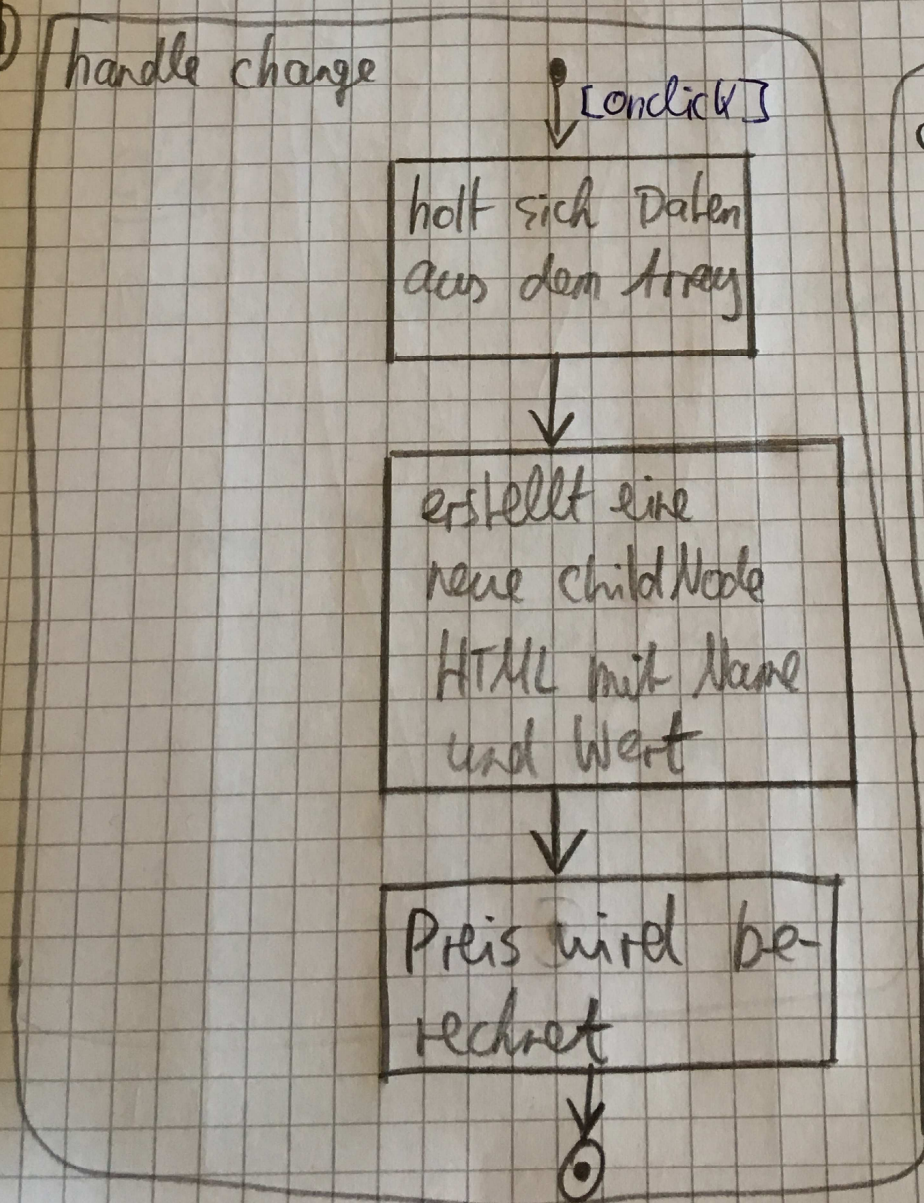 handle change
[onclick]
holt sich Daten
aus dem Array
erstellt eine
neue childNode
HTML mit Name
und Wert
Preis wird be-
rechnet